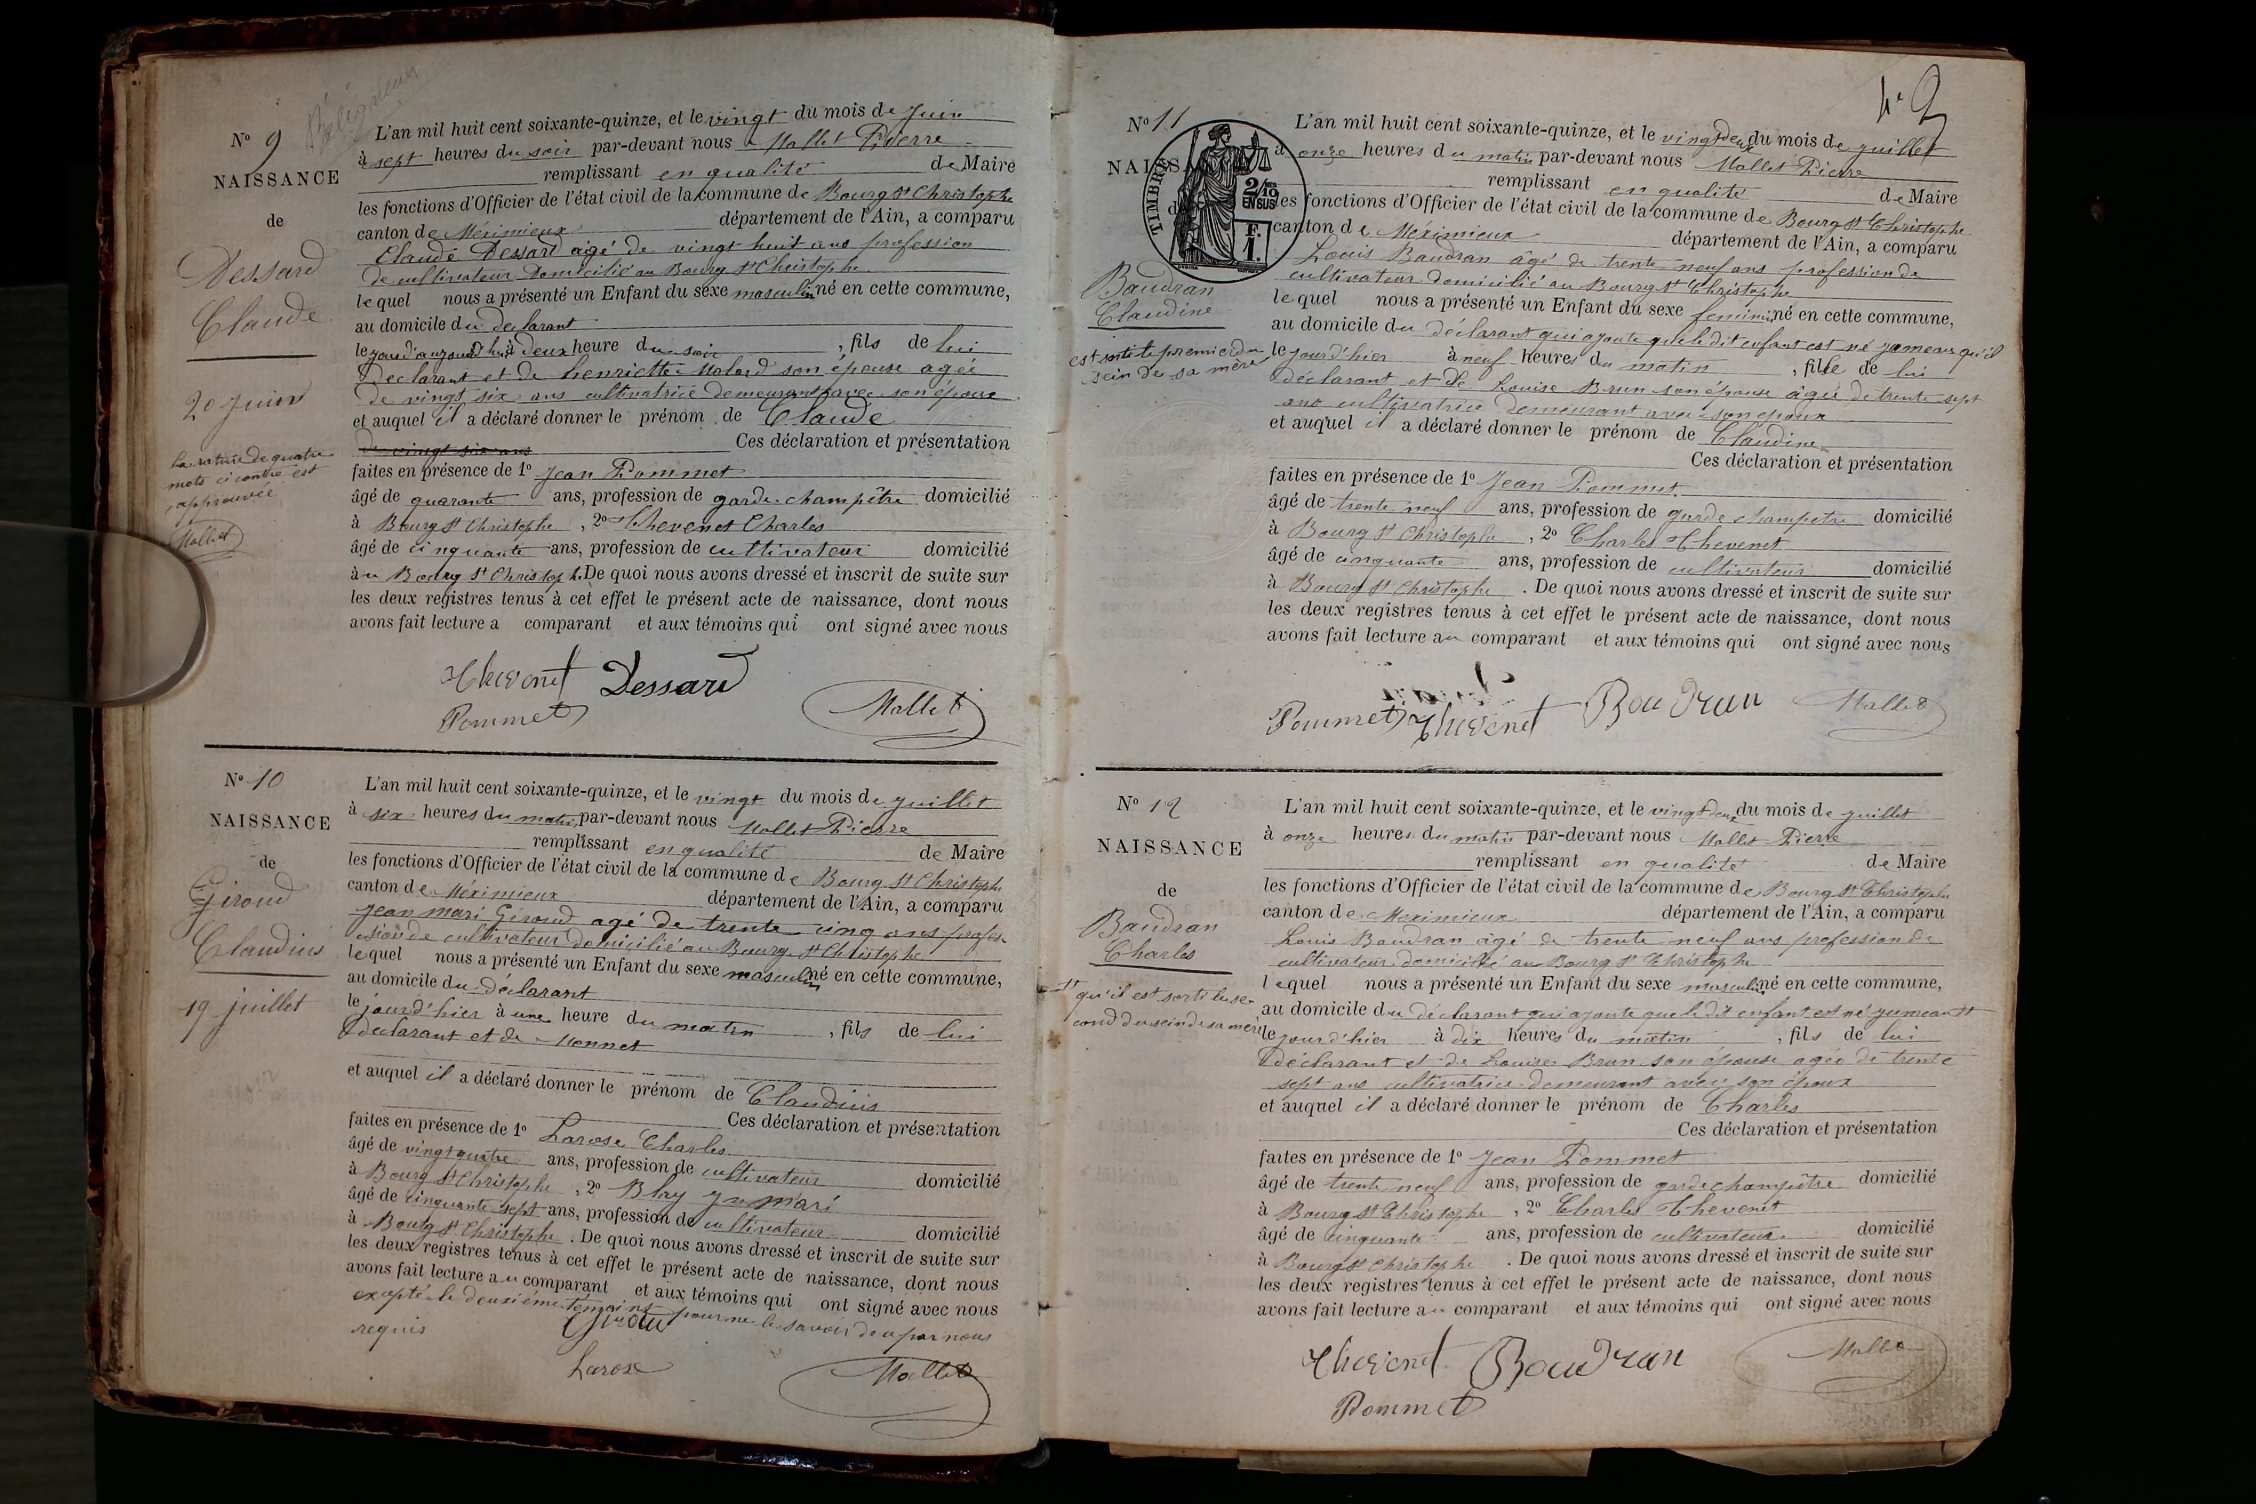 N° 9
NAISSANCE
de
Dessard
Claude
20 juin
La rature de quatre
mots ci contre est
approuvée
Mallet
L'an mil huit cent soixante-quinze, et le vingt du mois de Juin
à sept heures du soir par-devant nous Mallet Pierre
remplissant en qualité de Maire
les fonctions d'Officier de l'état civil de la commune de Bourg St Christophe
canton de Meximieux département de l'Ain, a comparu
Claude Dessard agé de vingt huit ans profession
de cultivateur Domicilié au Bourg St Christophe
lequel nous a présenté un Enfant du sexe masculin né en cette commune,
au domicile du declarant
le jourd'aujourd'hui à deux heure du soir, fils de lui
Declarant et de henriette Molard son épouse agée
de vingt six ans cultivatrice demeurant avec son époux
et auquel il a déclaré donner le prénom de Claude
de vingt six ans Ces déclaration et présentation
faites en présence de 1° Jean Pommet
âgé de quarante ans, profession de garde-champêtre domicilié
à Bourg St Christophe, 2° Thevenet Charles
âgé de cinquante ans, profession de cultivateur domicilié
au Bourg St Christophe. De quoi nous avons dressé et inscrit de suite sur
les deux registres tenus à cet effet le présent acte de naissance, dont nous
avons fait lecture a comparant et aux témoins qui ont signé avec nous
Thevenet Dessard
Pommet Mallet
N° 10
NAISSANCE
de
Giroud
Claudius
19 juillet
L'an mil huit cent soixante-quinze, et le vingt du mois de juillet
à six heures du matin par-devant nous Mallet Pierre
remplissant en qualité de Maire
les fonctions d'Officier de l'état civil de la commune de Bourg St Christophe
canton de Méximieux département de l'Ain, a comparu
Jean mari Giroud agé de trente cinq ans profes-
sion de cultivateur domicilié au Bourg St Christophe
lequel nous a présenté un Enfant du sexe masculin né en cette commune,
au domicile du déclarant
le jourd'hier à une heure du matin, fils de lui
déclarant et de Monnet
et auquel il a déclaré donner le prénom de Claudius
Ces déclaration et présentation
faites en présence de 1° Larose Charles
âgé de vingt quatre ans, profession de cultivateur domicilié
à Bourg St Christophe, 2° Blay jn mari
âgé de cinquante sept ans, profession de cultivateur domicilié
à Bourg St Christophe. De quoi nous avons dressé et inscrit de suite sur
les deux registres tenus à cet effet le présent acte de naissance, dont nous
avons fait lecture au comparant et aux témoins qui ont signé avec nous
excepté le deuxième témoins pour ne le savoir de a par nous
requis
Larose Mallet
N° 11
NAISSA
TIMBRE
2/10 EN SUS
F. 1.
Baudran
Claudine
est sorti le premier du
sein de sa mère
L'an mil huit cent soixante-quinze, et le vingt deux du mois de juillet
à onze heures du matin par-devant nous Mallet Pierre
remplissant en qualité de Maire
les fonctions d'Officier de l'état civil de la commune de Bourg St Christophe
canton de Méximieux département de l'Ain, a comparu
Louis Baudran âgé de trente neuf ans profession de
cultivateur domicilié au Bourg St Christophe
lequel nous a présenté un Enfant du sexe féminin né en cette commune,
au domicile du déclarant qui ajoute que le dit enfant est né jumeau qu'il
le jourd'hier à neuf heures du matin, fille de lui
déclarant et de Louise Brun son épouse âgée de trente sept
ans cultivatrice demeurant avec son epoux
et auquel il a déclaré donner le prénom de Claudine
Ces déclaration et présentation
faites en présence de 1° Jean Pommet
âgé de trente neuf ans, profession de garde champetre domicilié
à Bourg St Christophe, 2° Charles Thevenet
âgé de cinquante ans, profession de cultivateur domicilié
à Bourg St Christophe. De quoi nous avons dressé et inscrit de suite sur
les deux registres tenus à cet effet le présent acte de naissance, dont nous
avons fait lecture au comparant et aux témoins qui ont signé avec nous
Pommet Thevenet Boudran Mallet
N° 12
NAISSANCE
de
Baudran
Charles
qu'il est sorti le se-
cond du sein de sa mère
L'an mil huit cent soixante-quinze, et le vingt deux du mois de juillet
à onze heures du matin par-devant nous Mallet Pierre
remplissant en qualité de Maire
les fonctions d'Officier de l'état civil de la commune de Bourg St Christophe
canton de Meximieux département de l'Ain, a comparu
Louis Baudran âgé de trente neuf ans profession de
cultivateur domicilié au Bourg St Christophe
lequel nous a présenté un Enfant du sexe masculin né en cette commune,
au domicile du déclarant qui ajoute que le dit enfant est né jumeau et
le jourd'hier à dix heures du matin, fils de lui
déclarant et de Louise Brun son épouse agée de trente
sept ans cultivatrice demeurant avec son époux
et auquel il a déclaré donner le prénom de Charles
Ces déclaration et présentation
faites en présence de 1° Jean Pommet
âgé de trente neuf ans, profession de garde champêtre domicilié
à Bourg St Christophe, 2° Charles Thevenet
âgé de cinquante ans, profession de cultivateur domicilié
à Bourg St Christophe. De quoi nous avons dressé et inscrit de suite sur
les deux registres tenus à cet effet le présent acte de naissance, dont nous
avons fait lecture au comparant et aux témoins qui ont signé avec nous
Thevenet Boudran Mallet
Pommet